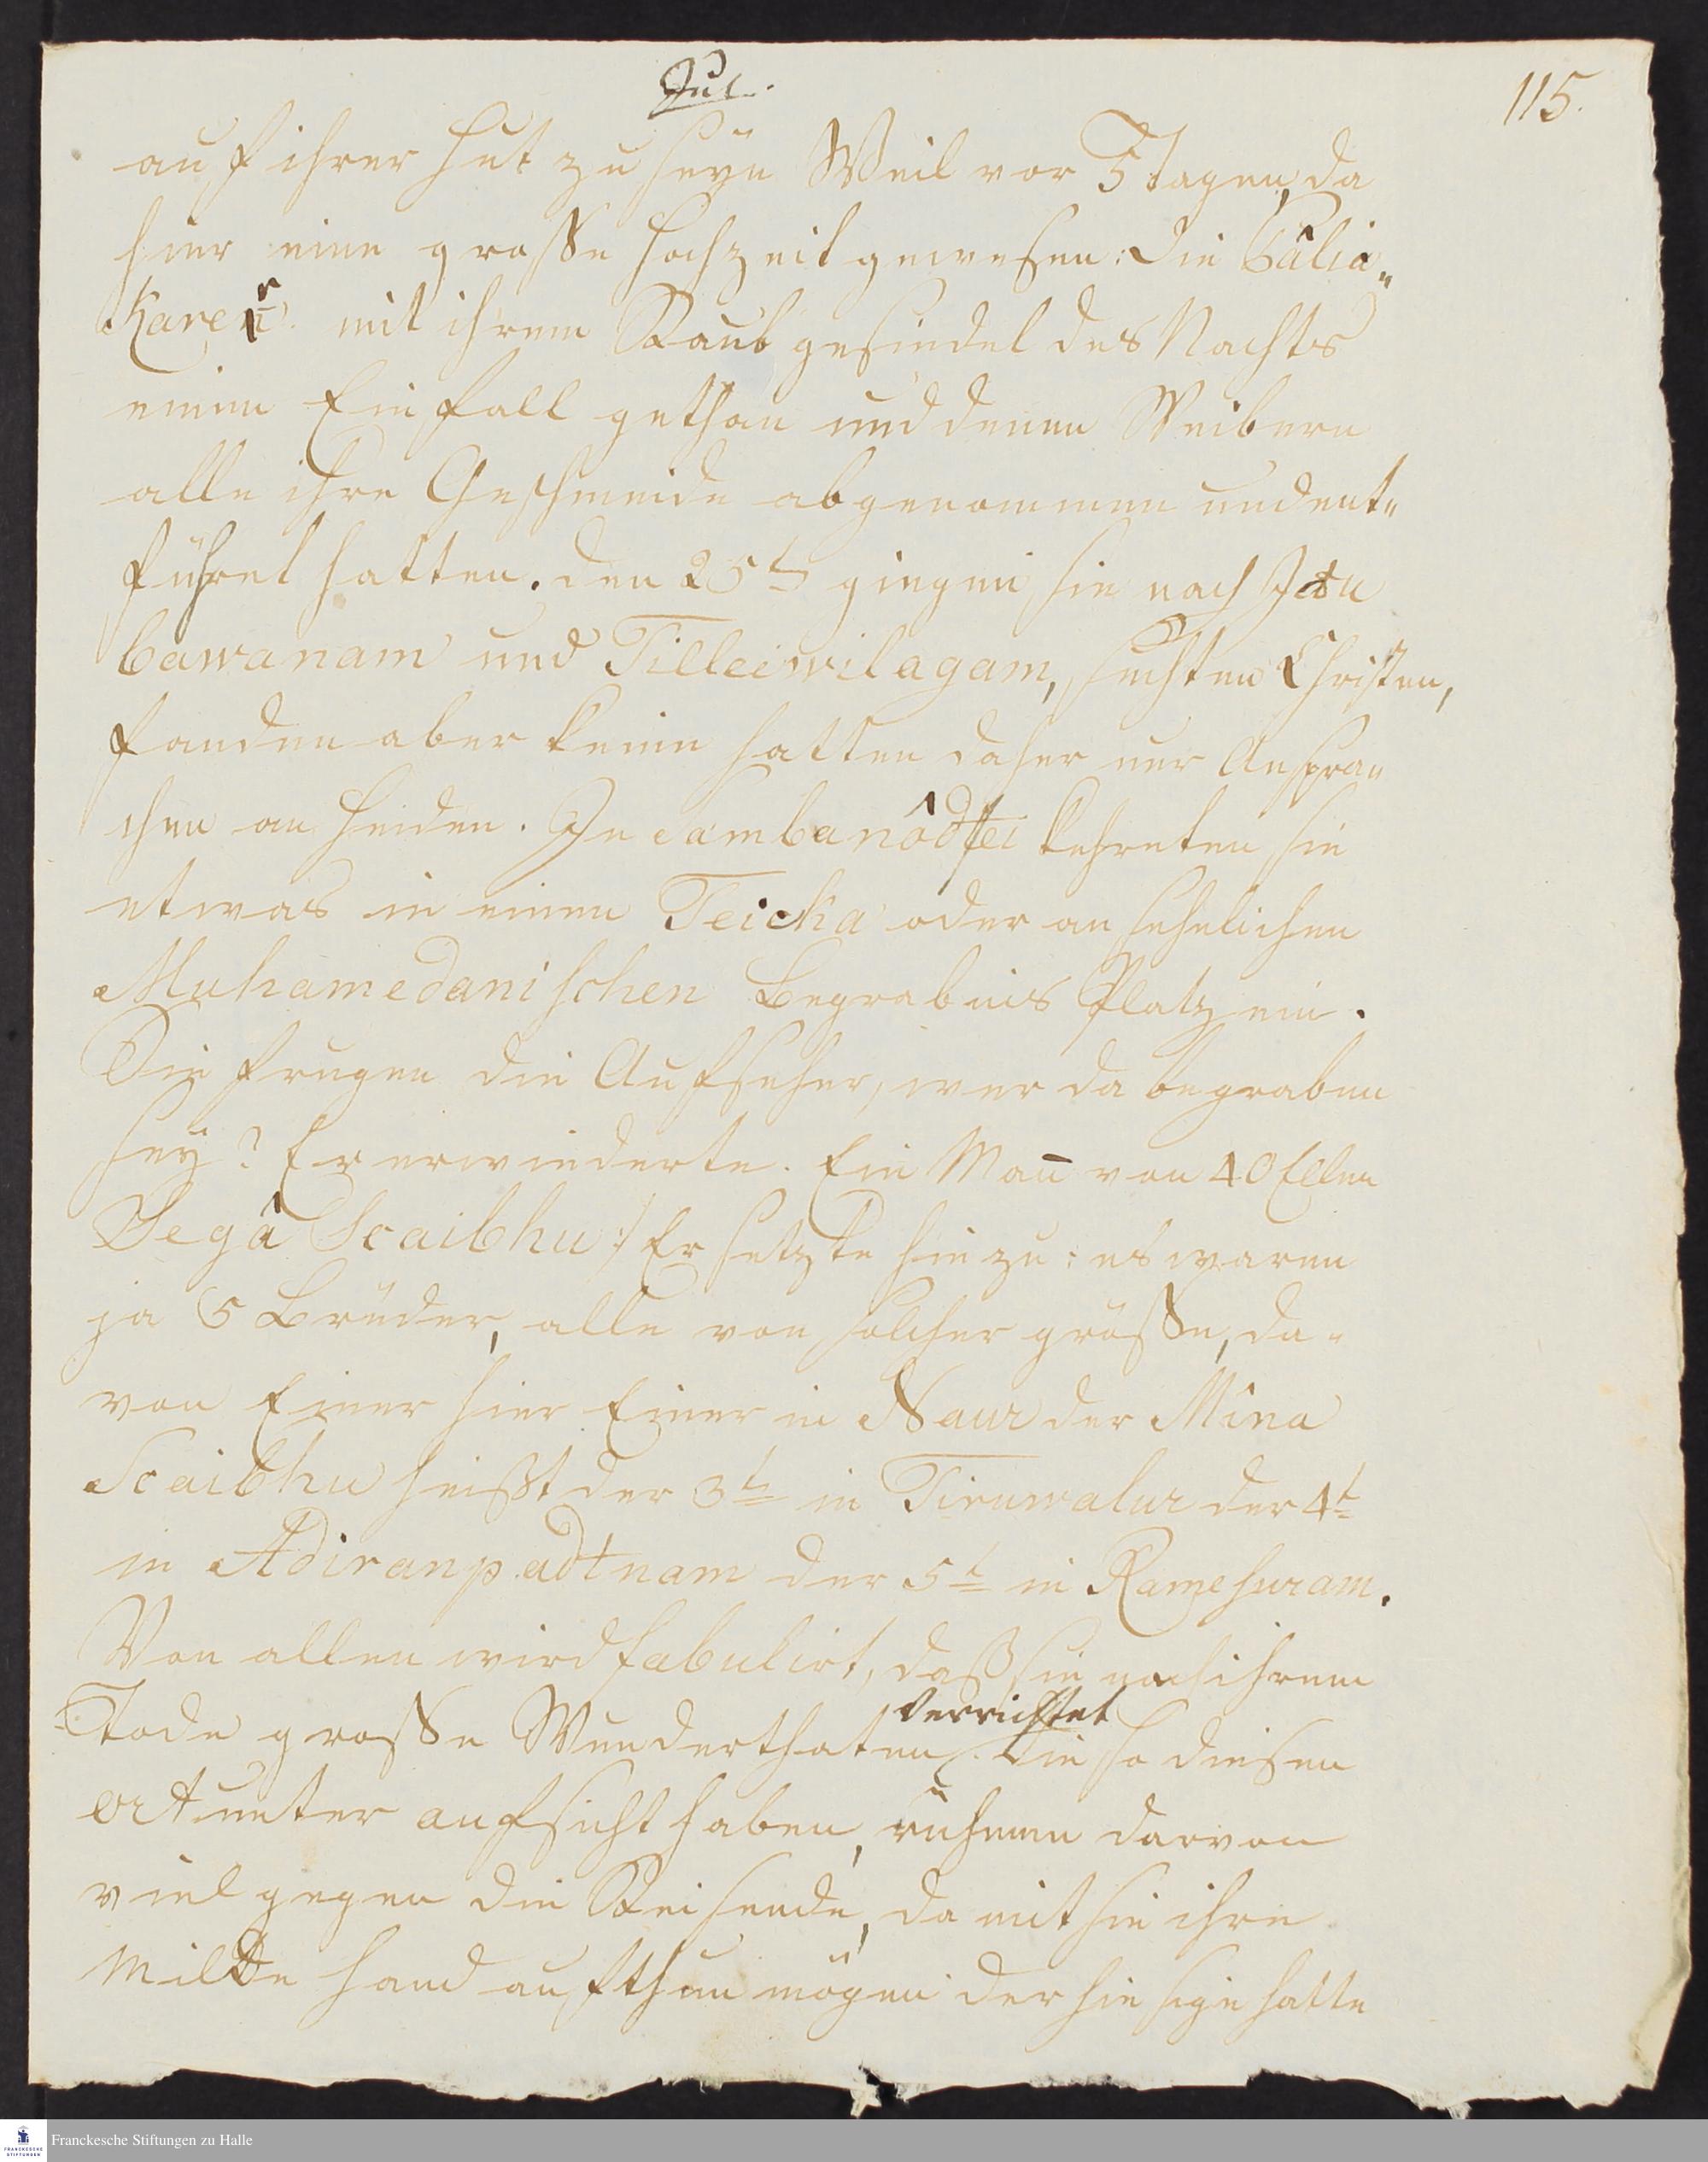 Jul.
115.
auf ihrer Hut zu seyn Weil vor 5 Tagen, da
hier eine große Hochzeit gewesen: die Pâlia„
Karer mit ihrem Raubgesindel des Nachts
einen Einfall gethan und denen Weibern
alle ihre Geschmeide abgenommen und ent„
führet hatten. den 25t giengen sie nach
bawanam und Tilleiwilagam, suchten Christen,
fanden aber keine hatten daher nur Anspra„
chen an Heiden. In kehreten sie
etwas in einem Teicka oder ansehnlichen
Muhamedanischen Begrabnis Platz ein.
Sie frugen die Aufseher, wer da begraben
sey? Er erwiederte. Ein Mañ von 40 Ellen
Segâ Scaibhu :/ Er setzte hinzu: es waren
ja 5 Brüder, alle von solcher größe, da-
von Einer hier Einer in Naur der Mina
Scaibhu heißt der 3t in Tiruwalur der 4t
in Adiranpadtnam der 5t in Ramesuram.
Von allen wird fabulirt, daß sie nach ihrem
Tode große Wunderthaten verrichtet. Die so diesen
ort unter aufsicht haben, rühmen darvon
viel gegen die Reisende, damit sie ihre
Milde Hand aufthun mögen der hiesige hatte
Franckesche Stiftungen zu Halle